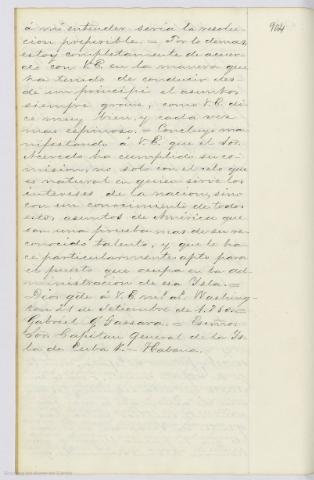 964
á mi entender seria la resolu-
cion preferible. = Por lo demas,
estoy completamente de acuer-
do con V.E. en la manera que
ha tenido de conducir des-
de un principio el asunto
siempre grave, como V.E. di-
ce muy bien, y cada vez
mas espinoso. = Concluyo ma-
nifestando á V.E. que el Sor.
Acevedo ha cumplido su co-
mision, no solo con el celo que
es natural en quien sirve los
intereses de la nacion, sino
con un conocimiento de todos
estos asuntos de América que
son una prueba mas de su re-
conocido talento, y que le ha-
ce particularmente apto para
el puesto que ocupa en la ad-
ministracion de esa Isla. =
Dios gde á V.E. m.s a.s Washing-
ton 21 de Setiembre de 1850 =
Gabriel G Tassara. =
Sor Capitan General de la Is-
la de Cuba &.- Habana.